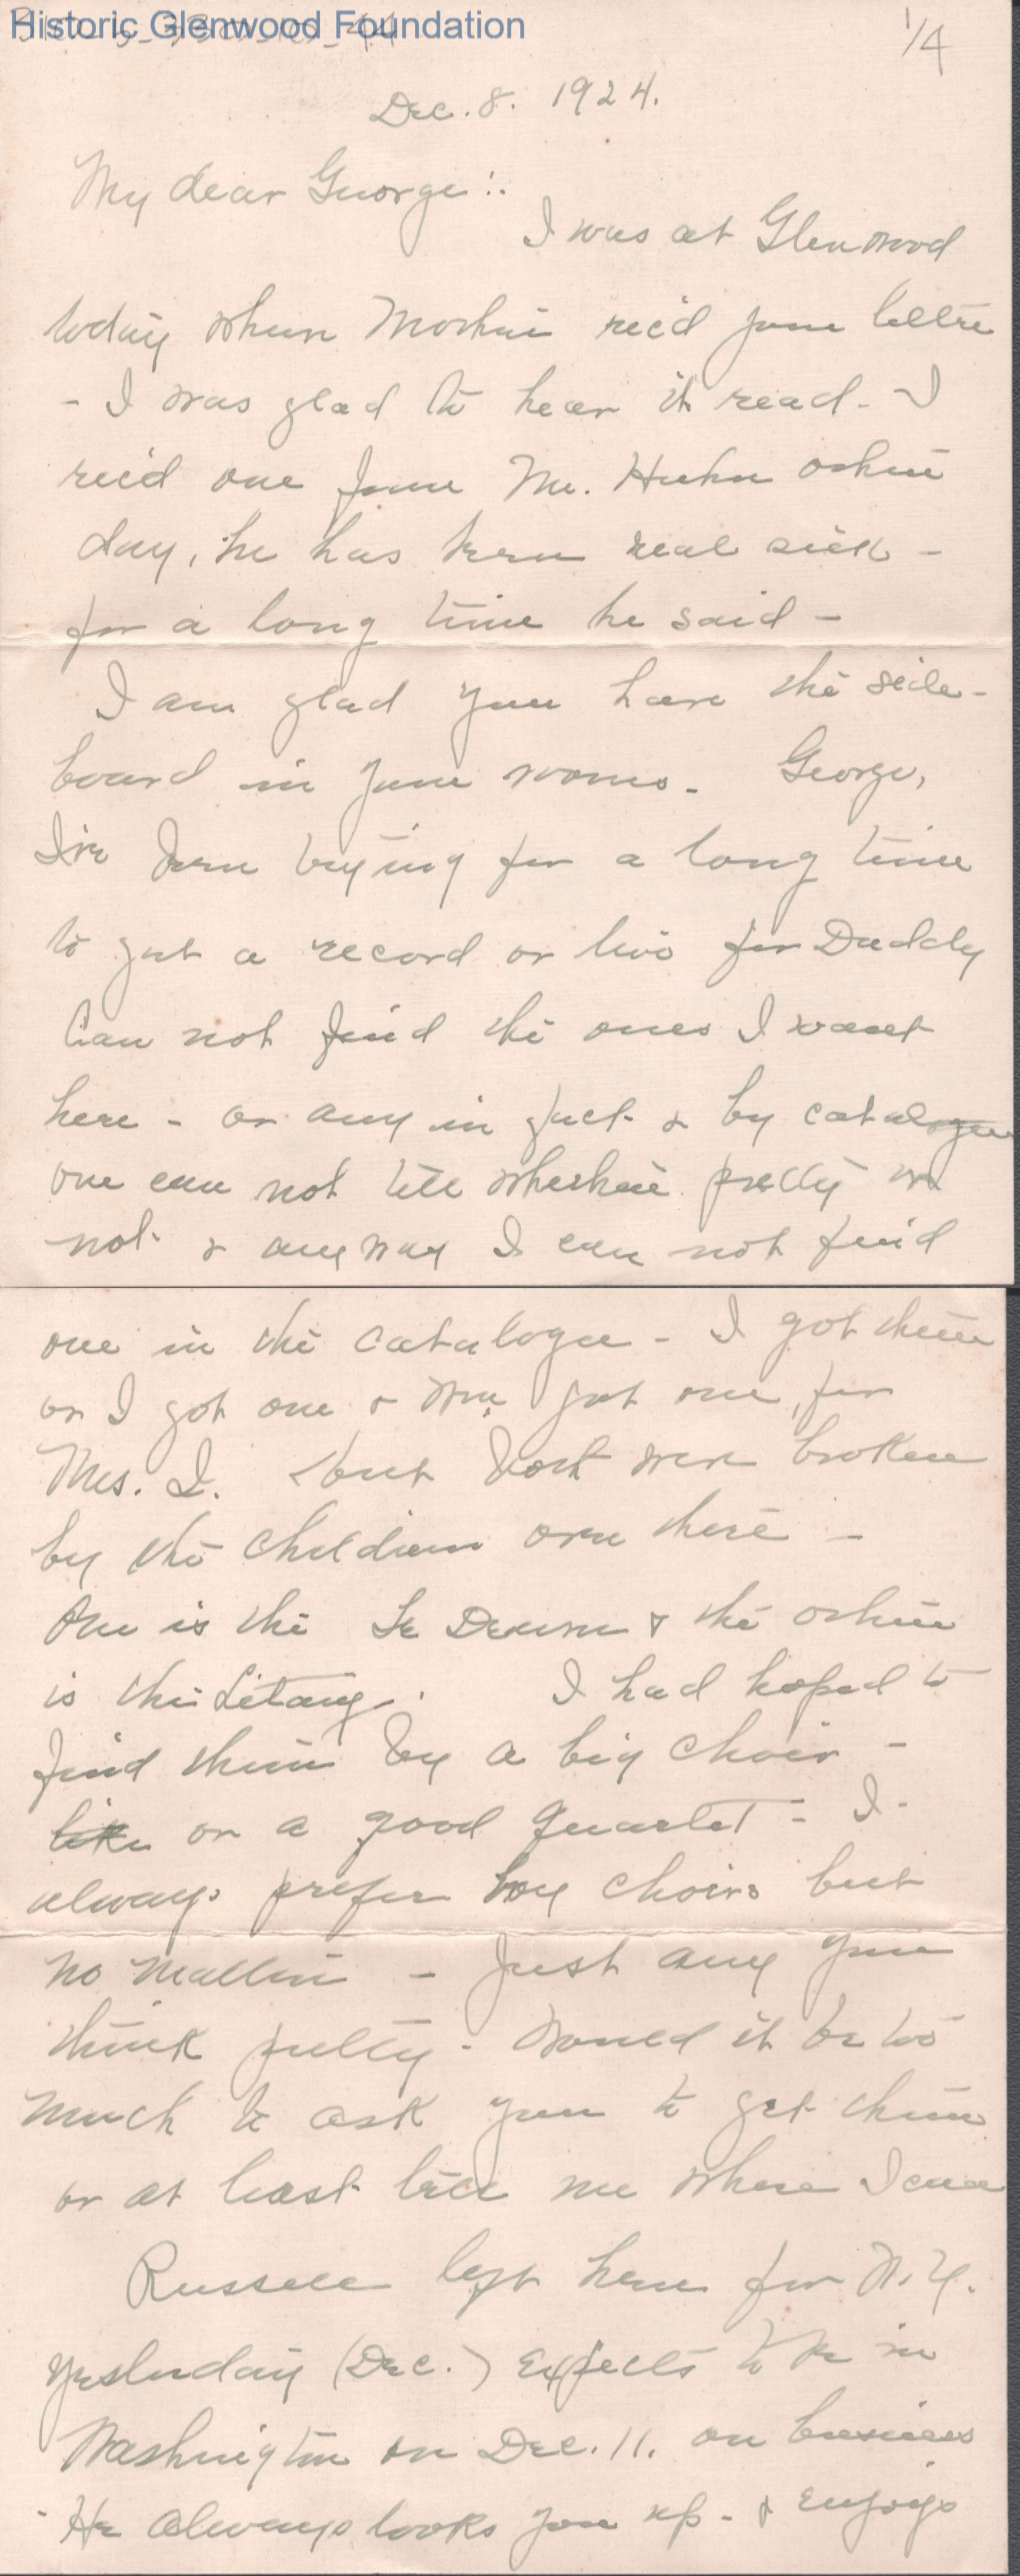 Historic Glenwood Foundation
1/4
Dec. 8. 1924.
My dear George:.
I was at Glenwood
today when Mother rec'd your letter
- I was glad to hear it read - I
rec'd one from Mr. Huhn other
day, he has been real sick -
for a long time he said -
I am glad you have the side-
board in your rooms. George,
I've been trying for a long time
to get a record or two for Daddy
Can not find the ones I want
here - or any in fact & by catalogue
one can not tell whether pretty or
not & any way I can not find
one in the catalogue - I got them
or I got one & got one, for
Mrs. I. but both were broken
by the children over there -
One is the Te Deum & the other
is the Litany. I had hoped to
find them by a big choir -
like or a good quartet - I -
always prefer boy choirs but
no matter - just any you
think pretty - would it be too
much to ask you to get them
or at least tell me where I can
Russell left here for N.Y.
yesterday (Dec. ) expects to be in
Washington on Dec. 11. on business
- He always looks you up - & enjoys